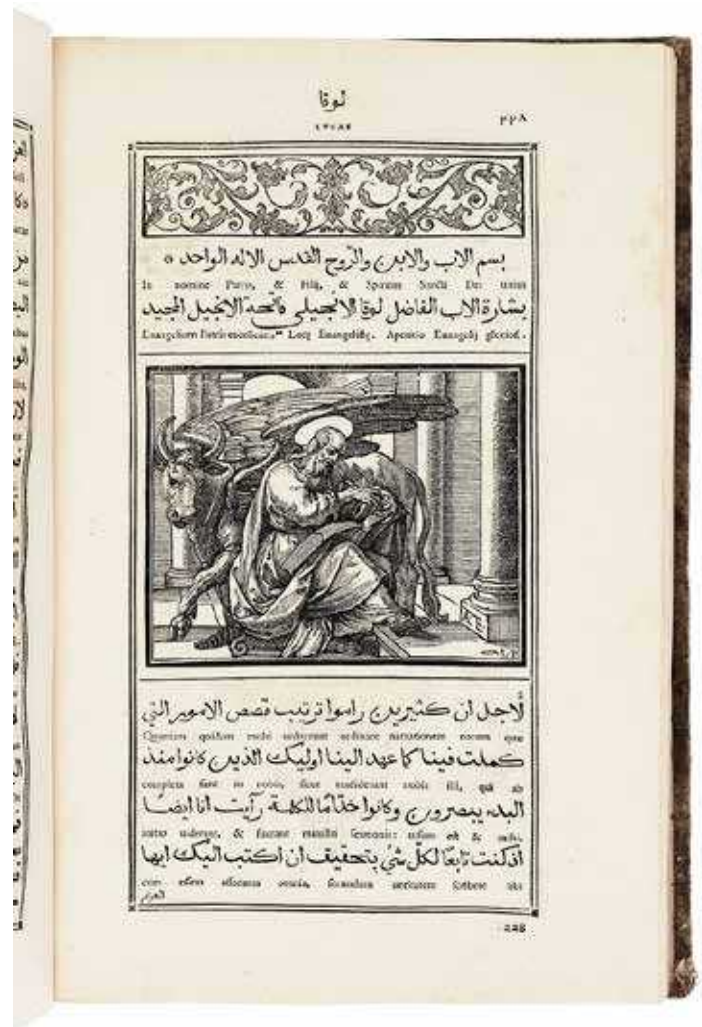 لوقا
LVCAS
٢٢٨
بسم الاب والابن والرّوح القدس الاله الواحد
In nomine Patris, & Filij, & Spiritus Sancti Dei unius
بشارة الاب الفاضل لوقا الانجيلي فاتحة الانجيل المجيد
Euangelium Lucę Euangelistę. Apertio Euangelij gloriosi.
لاجل ان كثيرين راموا ترتيب قصص الامور التي
Quoniam quidem multi ordinare narrationem rerum que
كملت فينا كما عهد الينا اوليك الذين كانوا منذ
completę sunt in nobis, sicut nobis illi, qui ab
البدء يبصرون وكانوا خدّامًا للكلمة رآيت انا ايضًا
initio & fuerunt ministri sermonis: uisum est & mihi,
اذ كنت تابعًا لكل شئ بتحقيق ان اكتب اليك ايها
cum essem omnia, scribere tibi
العزيز
228